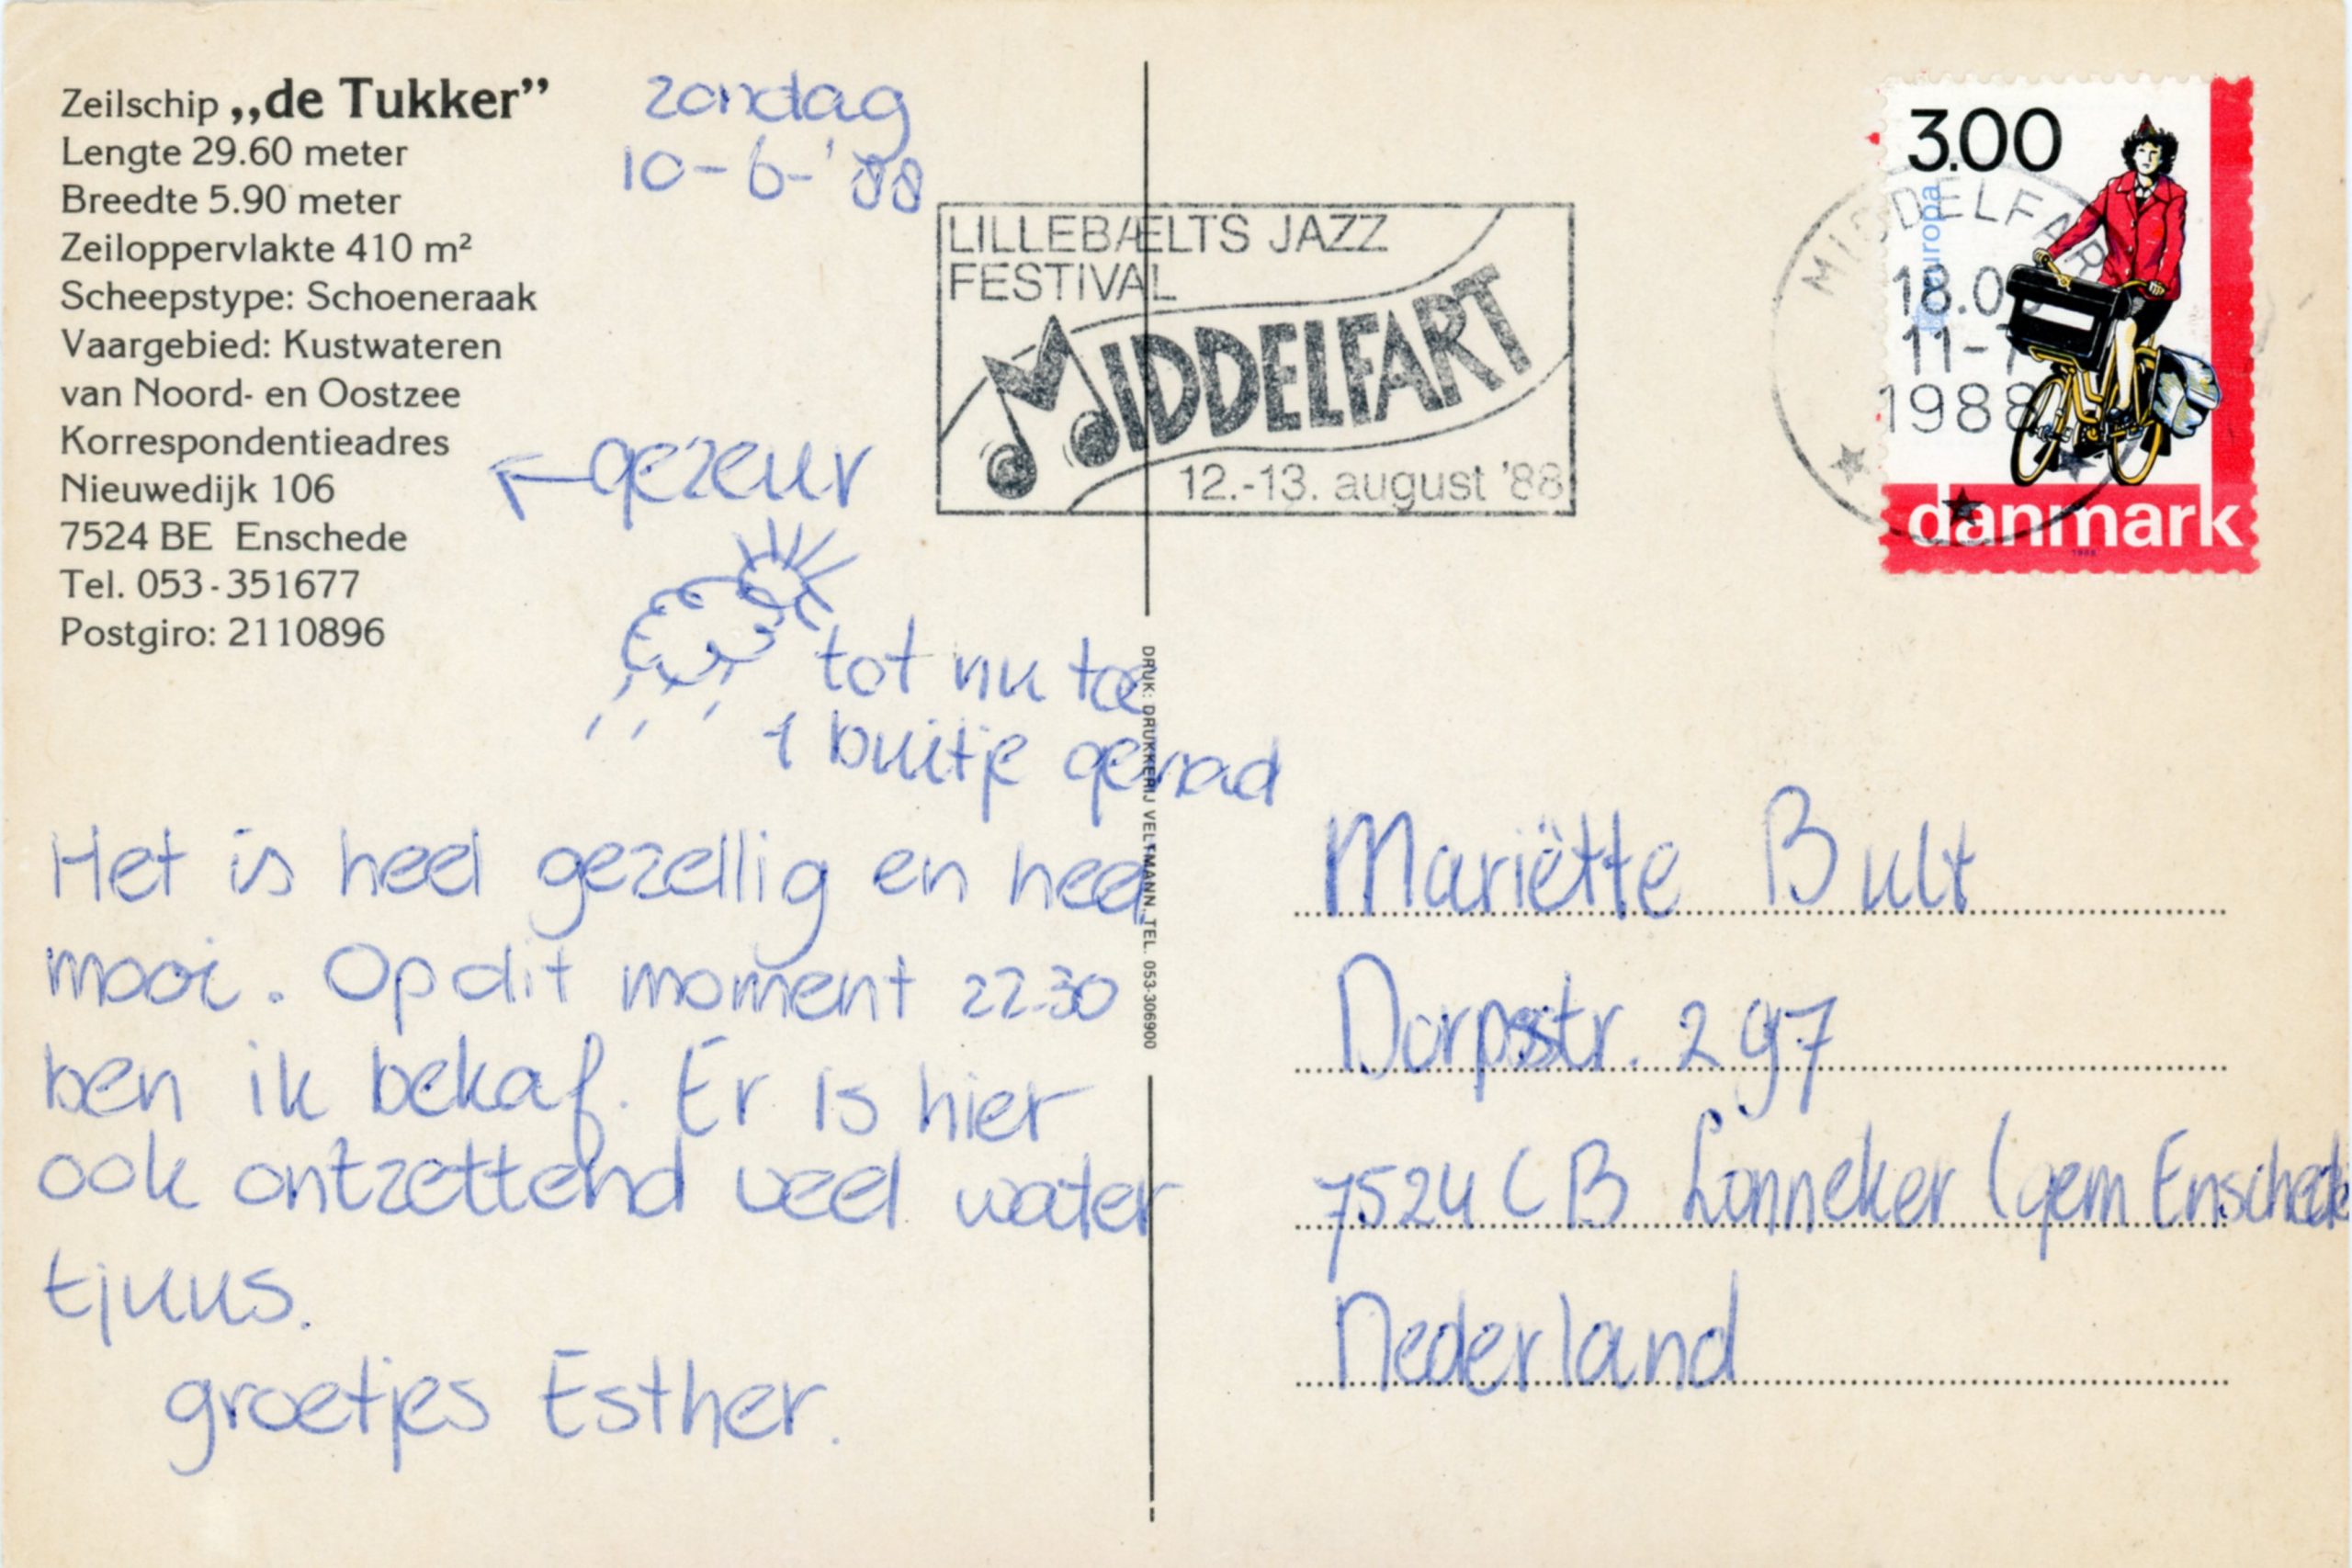 Zeilschip „de Tukker”
Lengte 29.60 meter
Breedte 5.90 meter
Zeiloppervlakte 410 m²
Scheepstype: Schoeneraak
Vaargebied: Kustwateren
van Noord- en Oostzee
Korrespondentieadres
Nieuwedijk 106
7524 BE Enschede
Tel. 053-351677
Postgiro: 2110896
zondag
10-6-'88
← gezeur
tot nu toe
1 buitje gehad
Het is heel gezellig en heel
mooi. Op dit moment 22.30
ben ik bekaf. Er is hier
ook ontzettend veel water
tjuus.
groetjes Esther.
LILLEBÆLTS JAZZ
FESTIVAL
MIDDELFART
12.-13. august '88
DRUK: DRUKKERIJ VELTMANN. TEL. 053-306900
3.00
europa
danmark
1988
MIDDELFART
18.0
11-7
1988
Mariëtte Bult
Dorpsstr. 297
7524 CB Lonneker (gem Enschede
Nederland